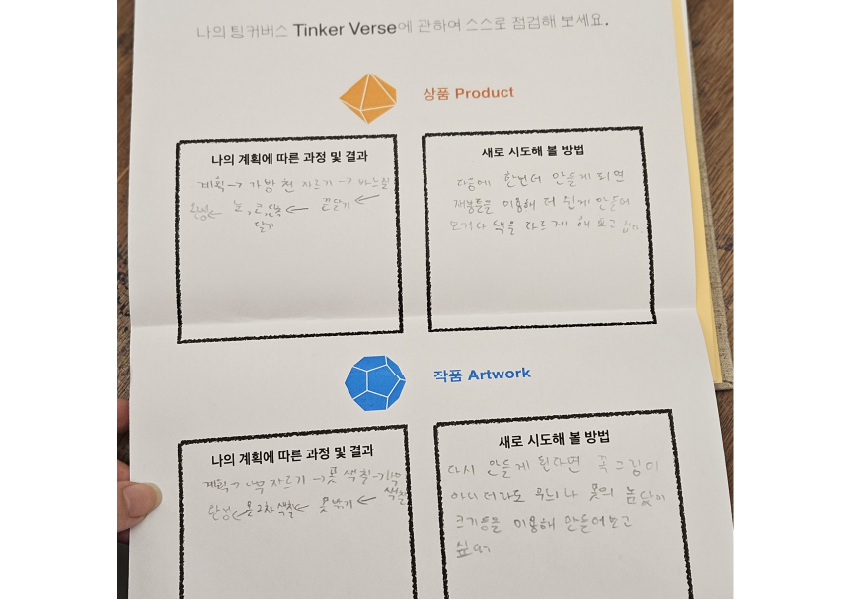 나의 팅커버스 Tinker Verse에 관하여 스스로 점검해 보세요.
상품 Product
나의 계획에 따른 과정 및 결과
계획→ 가방 천 자르기 → 바느질
완성← 눈, 큰 ← 끈달기 ←
달기
새로 시도해 볼 방법
다음에 한번더 만들게 되면
재봉틀을 이용해 더 쉽게 만들며
모기나 색을 다르게 해 보고 싶다.
작품 Artwork
나의 계획에 따른 과정 및 결과
계획→ 나무 자르기 →못 색칠→나무
색칠
완성← 못 2차 색칠← 못 박기 ←
새로 시도해 볼 방법
다시 만들게 된다면 꼭 그림이
아니더라도 무늬나 못의 높낮이
크기등을 이용해 만들어보고
싶어.